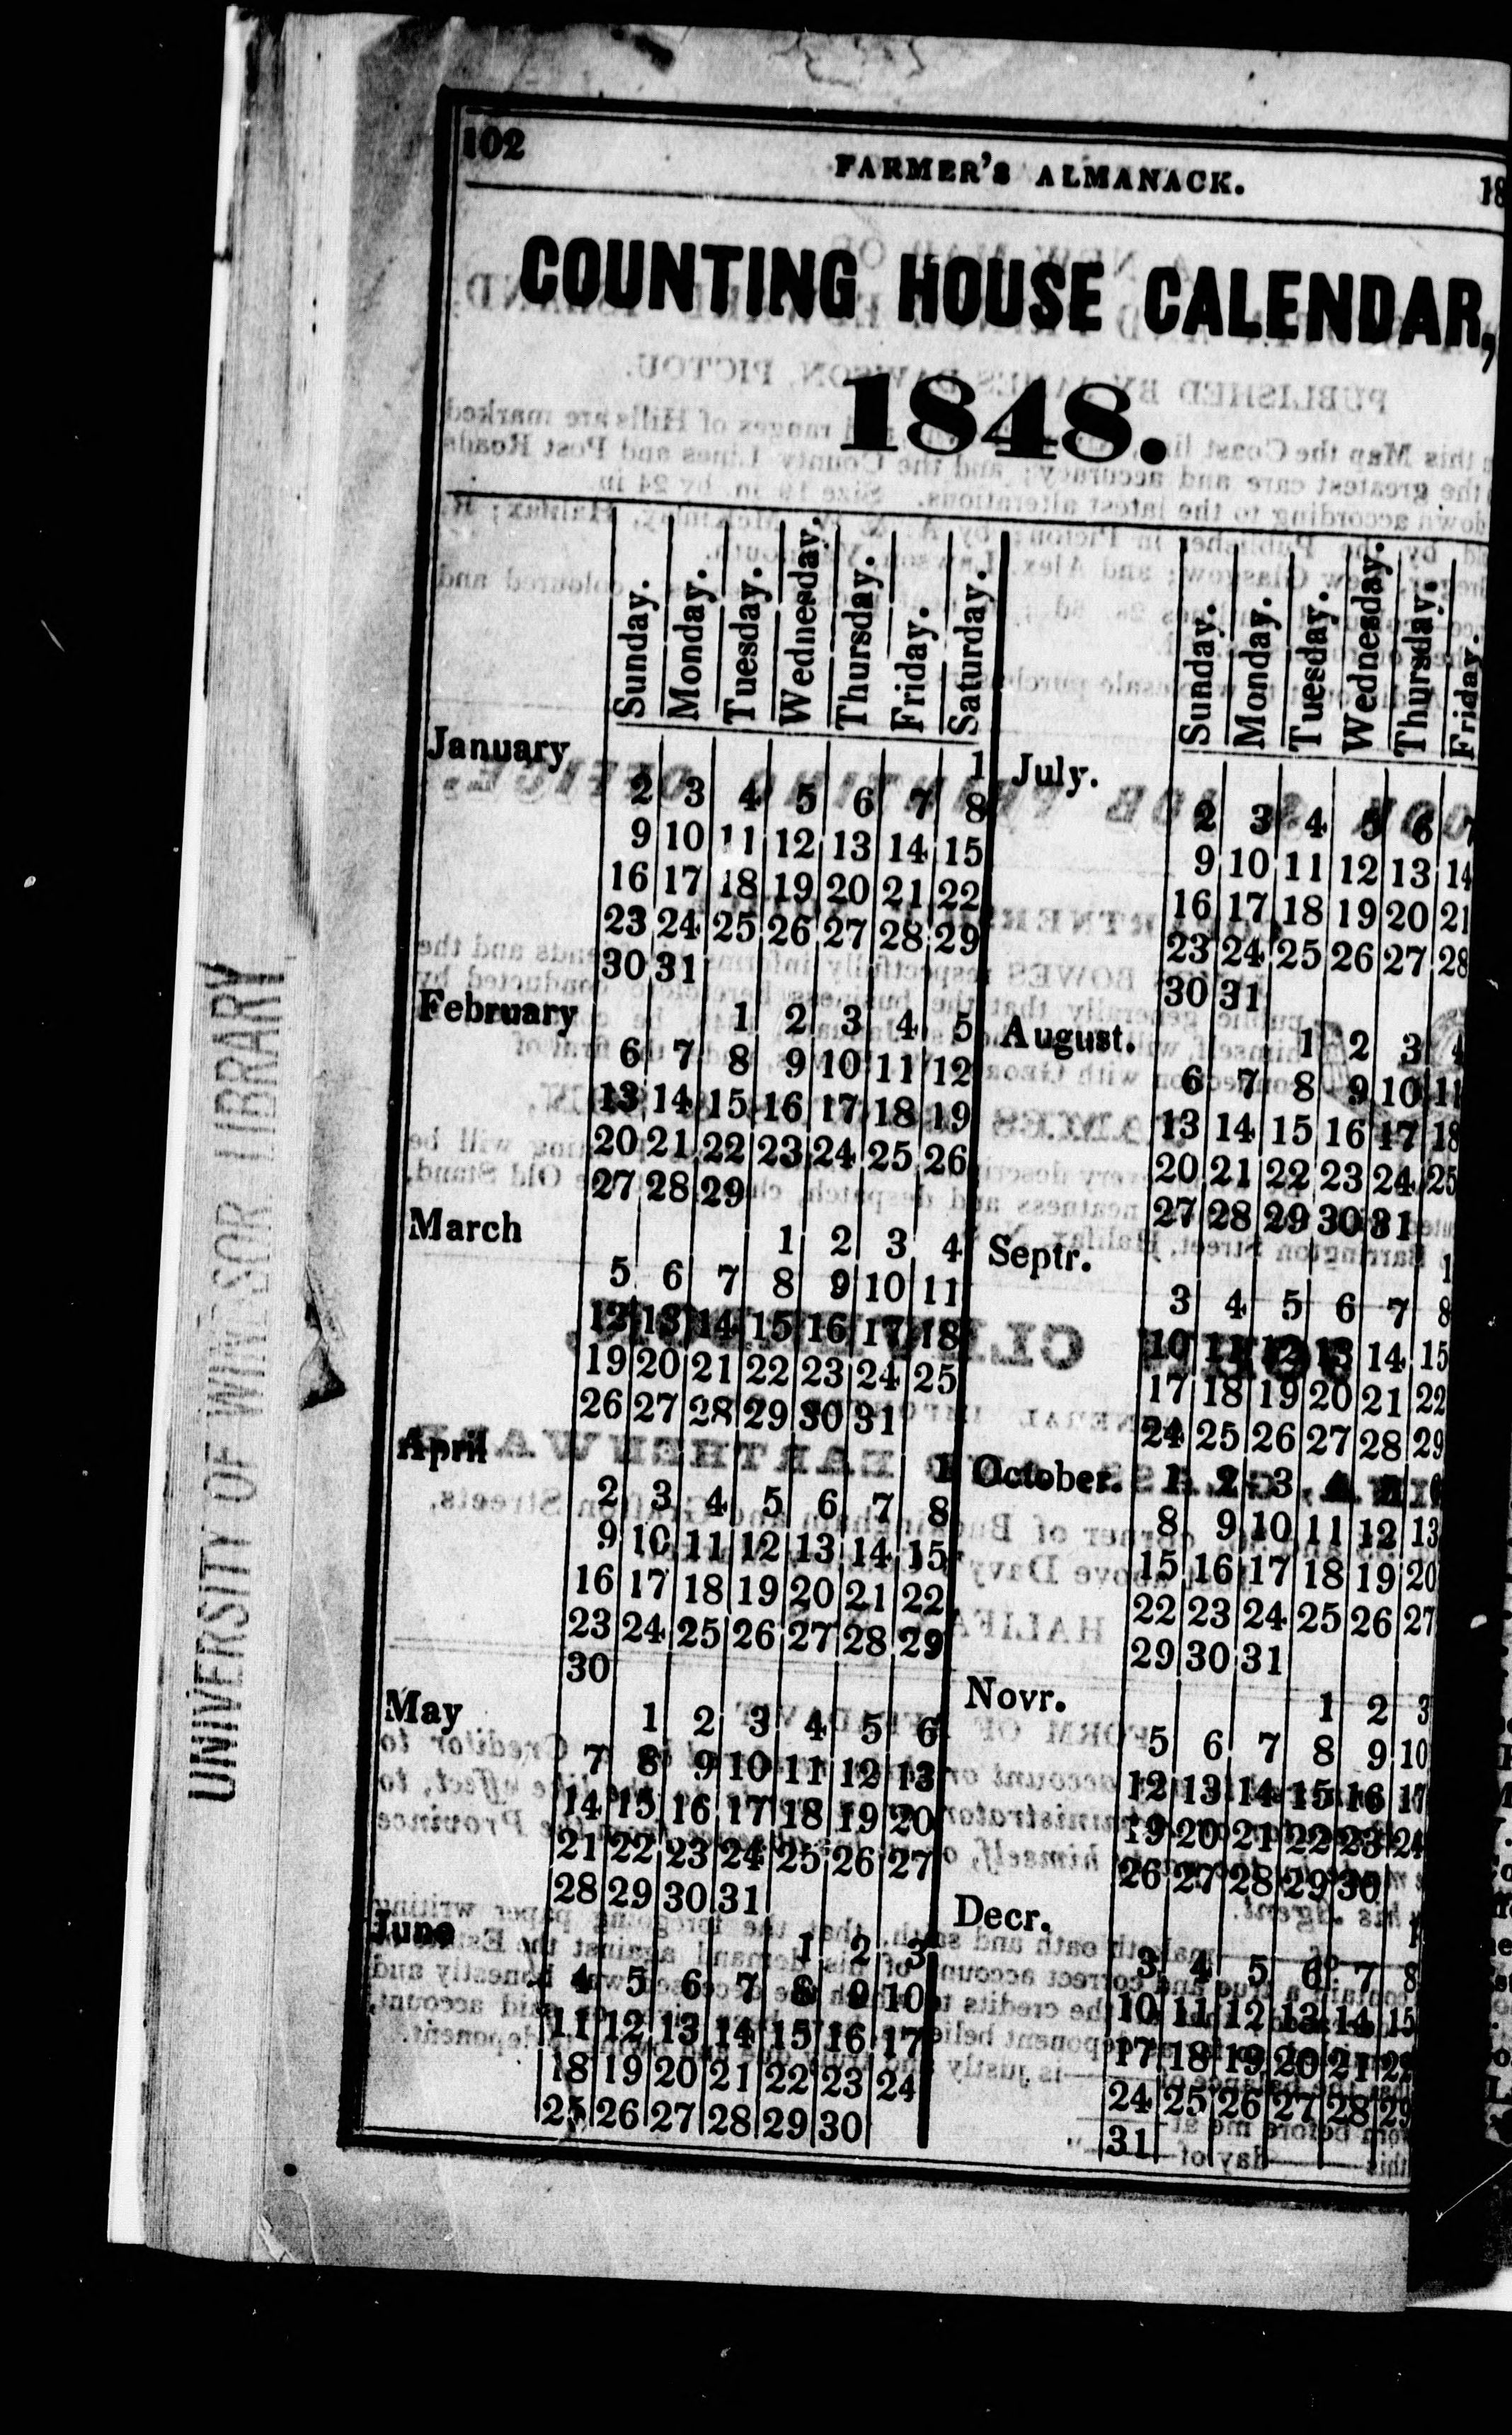 102
FARMER'S ALMANACK.
COUNTING HOUSE CALENDAR,
1848.
Sunday. Monday. Tuesday. Wednesday. Thursday. Friday. Saturday.
January 1
2 3 4 5 6 7 8
9 10 11 12 13 14 15
16 17 18 19 20 21 22
23 24 25 26 27 28 29
30 31
February 1 2 3 4 5
6 7 8 9 10 11 12
13 14 15 16 17 18 19
20 21 22 23 24 25 26
27 28 29
March 1 2 3 4
5 6 7 8 9 10 11
12 13 14 15 16 17 18
19 20 21 22 23 24 25
26 27 28 29 30 31
April 1
2 3 4 5 6 7 8
9 10 11 12 13 14 15
16 17 18 19 20 21 22
23 24 25 26 27 28 29
30
May 1 2 3 4 5 6
7 8 9 10 11 12 13
14 15 16 17 18 19 20
21 22 23 24 25 26 27
28 29 30 31
June 1 2 3
4 5 6 7 8 9 10
11 12 13 14 15 16 17
18 19 20 21 22 23 24
25 26 27 28 29 30
Sunday. Monday. Tuesday. Wednesday. Thursday. Friday.
July.
2 3 4 5 6 7
9 10 11 12 13 14
16 17 18 19 20 21
23 24 25 26 27 28
30 31
August. 1 2 3 4
6 7 8 9 10 11
13 14 15 16 17 18
20 21 22 23 24 25
27 28 29 30 31
Septr. 1
3 4 5 6 7 8
10 11 12 13 14 15
17 18 19 20 21 22
24 25 26 27 28 29
October. 1 2 3 4 5 6
8 9 10 11 12 13
15 16 17 18 19 20
22 23 24 25 26 27
29 30 31
Novr. 1 2 3
5 6 7 8 9 10
12 13 14 15 16 17
19 20 21 22 23 24
26 27 28 29 30
Decr. 1
3 4 5 6 7 8
10 11 12 13 14 15
17 18 19 20 21 22
24 25 26 27 28 29
31
UNIVERSITY OF WINDSOR LIBRARY